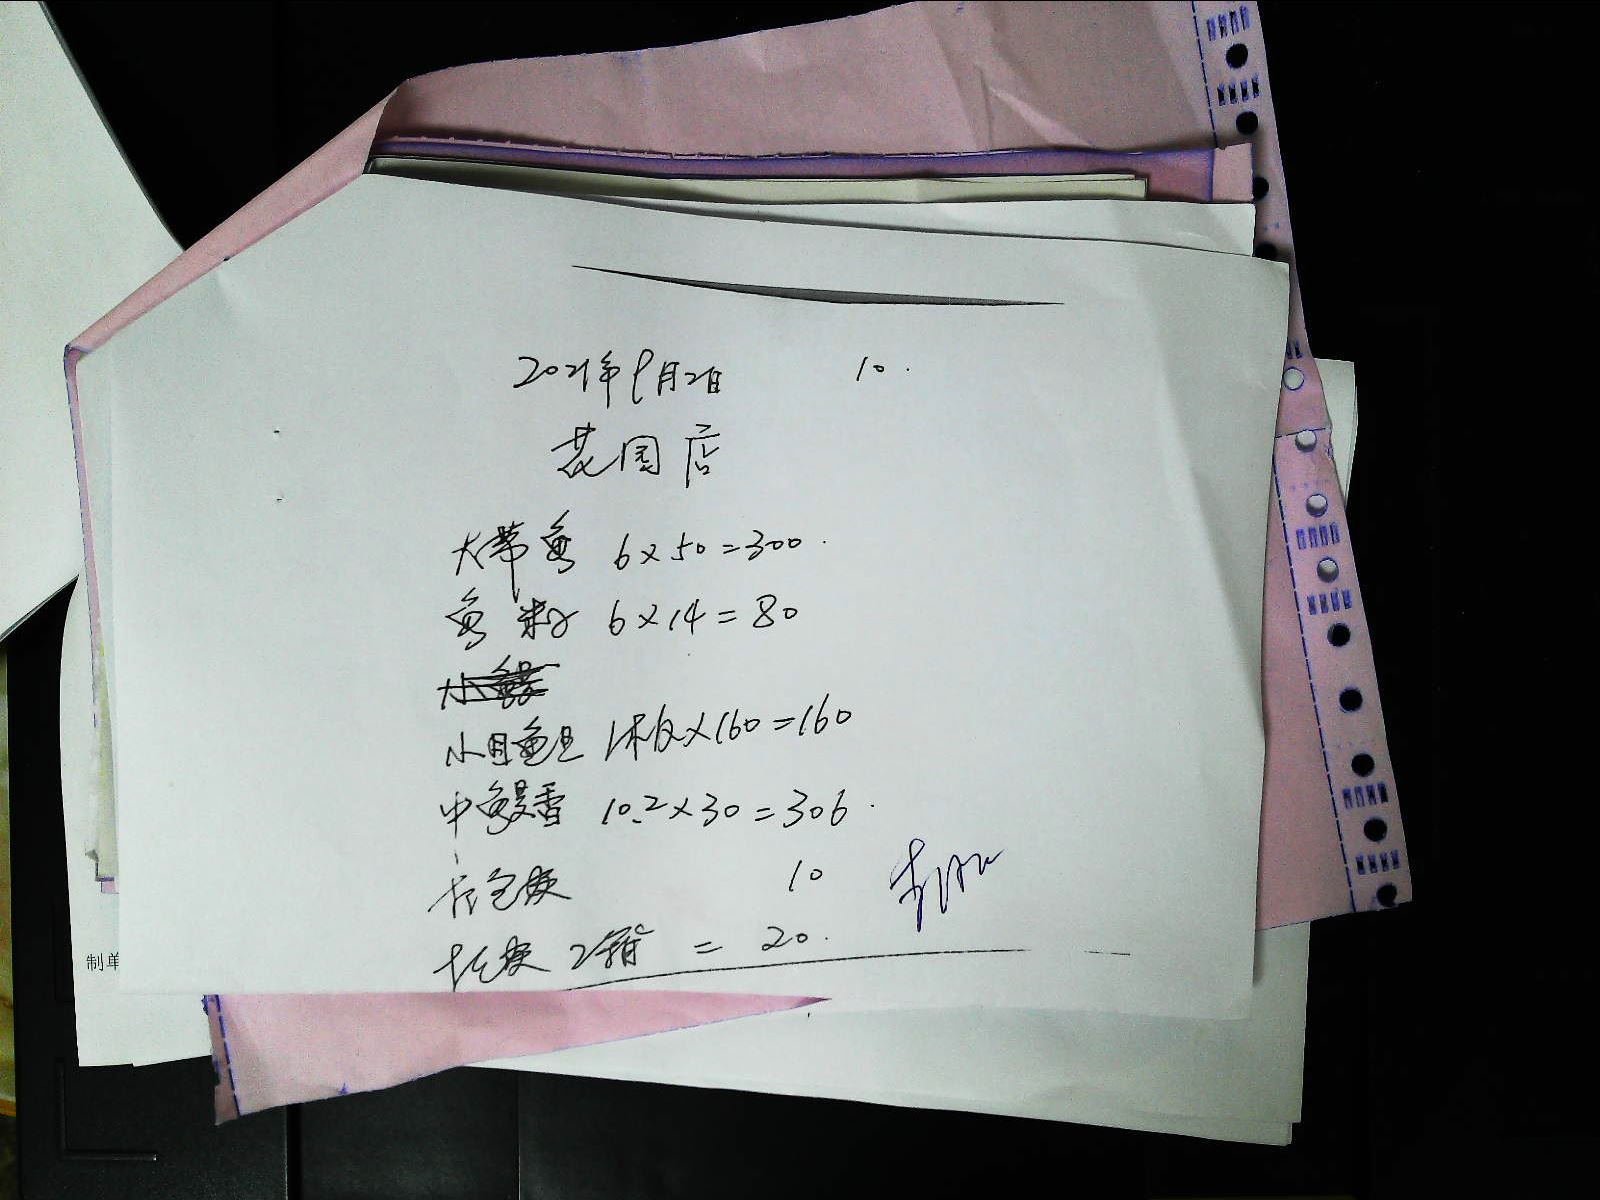 2021年9月2日 10.
花园店
大带鱼 6×50=300.
鱼籽 6×14=80
小目鱼旦 1板×160=160
中鳗香 10.2×30=306.
10
2箱 = 20.
制单